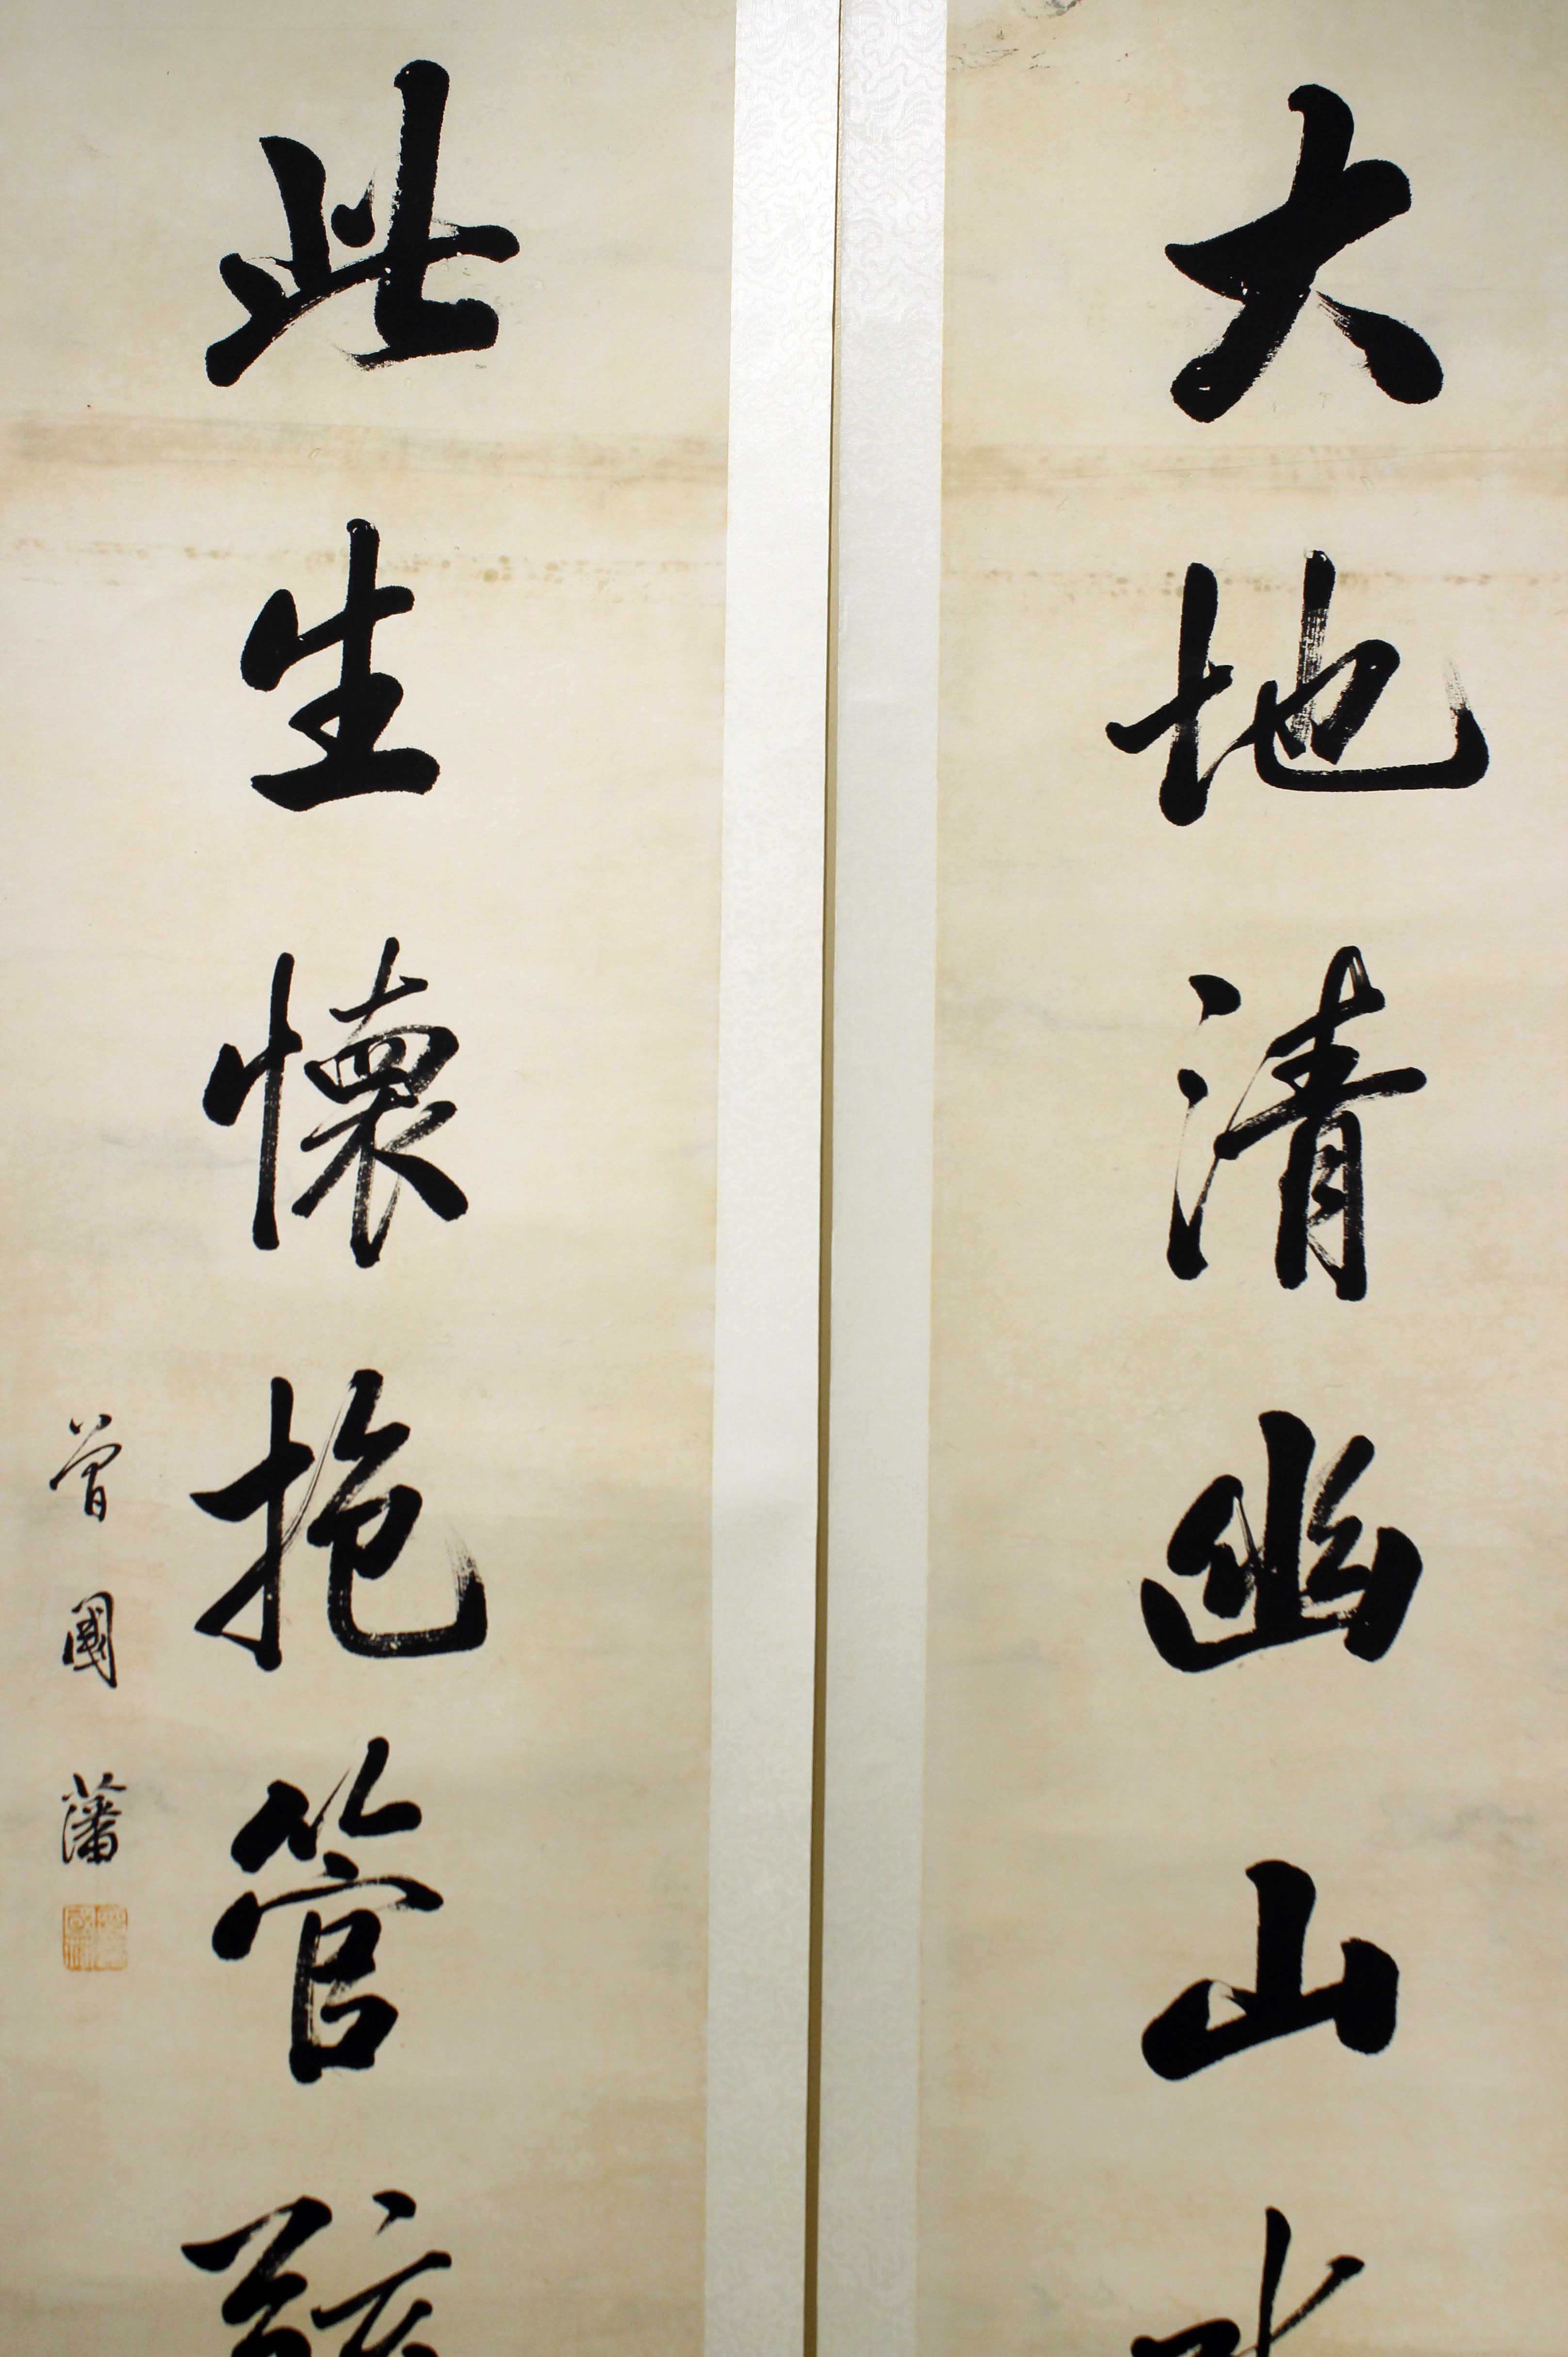 大地清幽山水
此生懷抱管絃
曾國藩